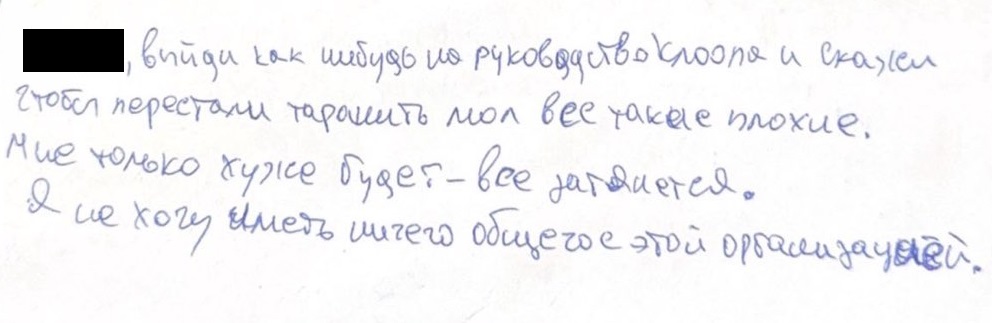 , выйди как нибудь на руководство Клоопа и скажи
чтобы перестали тарашить мол все такие плохие.
Мне только хуже будет - все затянется.
Я не хочу иметь ничего общего с этой организацией.